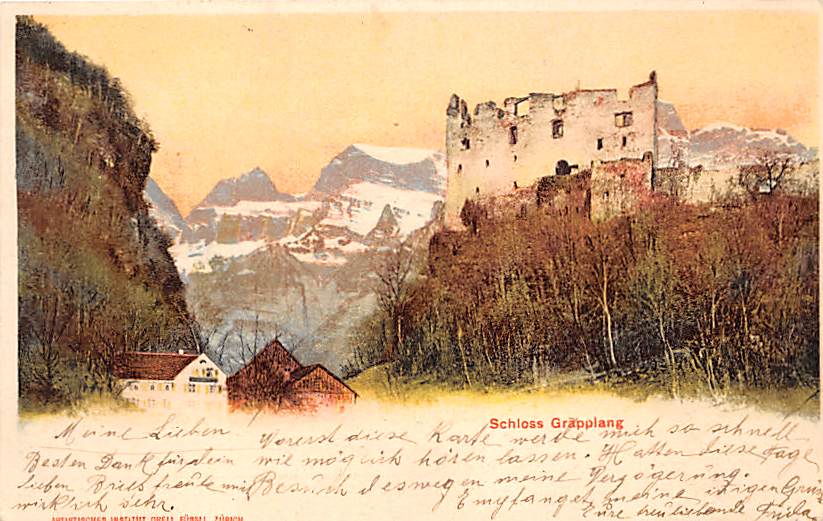 Schloss Gräpplang
Meine Lieben
Besten Dank für dein
lieben Brief freute mich
wirklich sehr.
Vorerst diese Karte werde mich so schnell
wie möglich hören lassen. Hatten diese Tage
Besuch deswegen meine Verzögerung.
Empfanget meine innigen Grüsse
Eure treuliebende Frida
ARTISTISCHES INSTITUT ORELL FÜSSLI, ZÜRICH